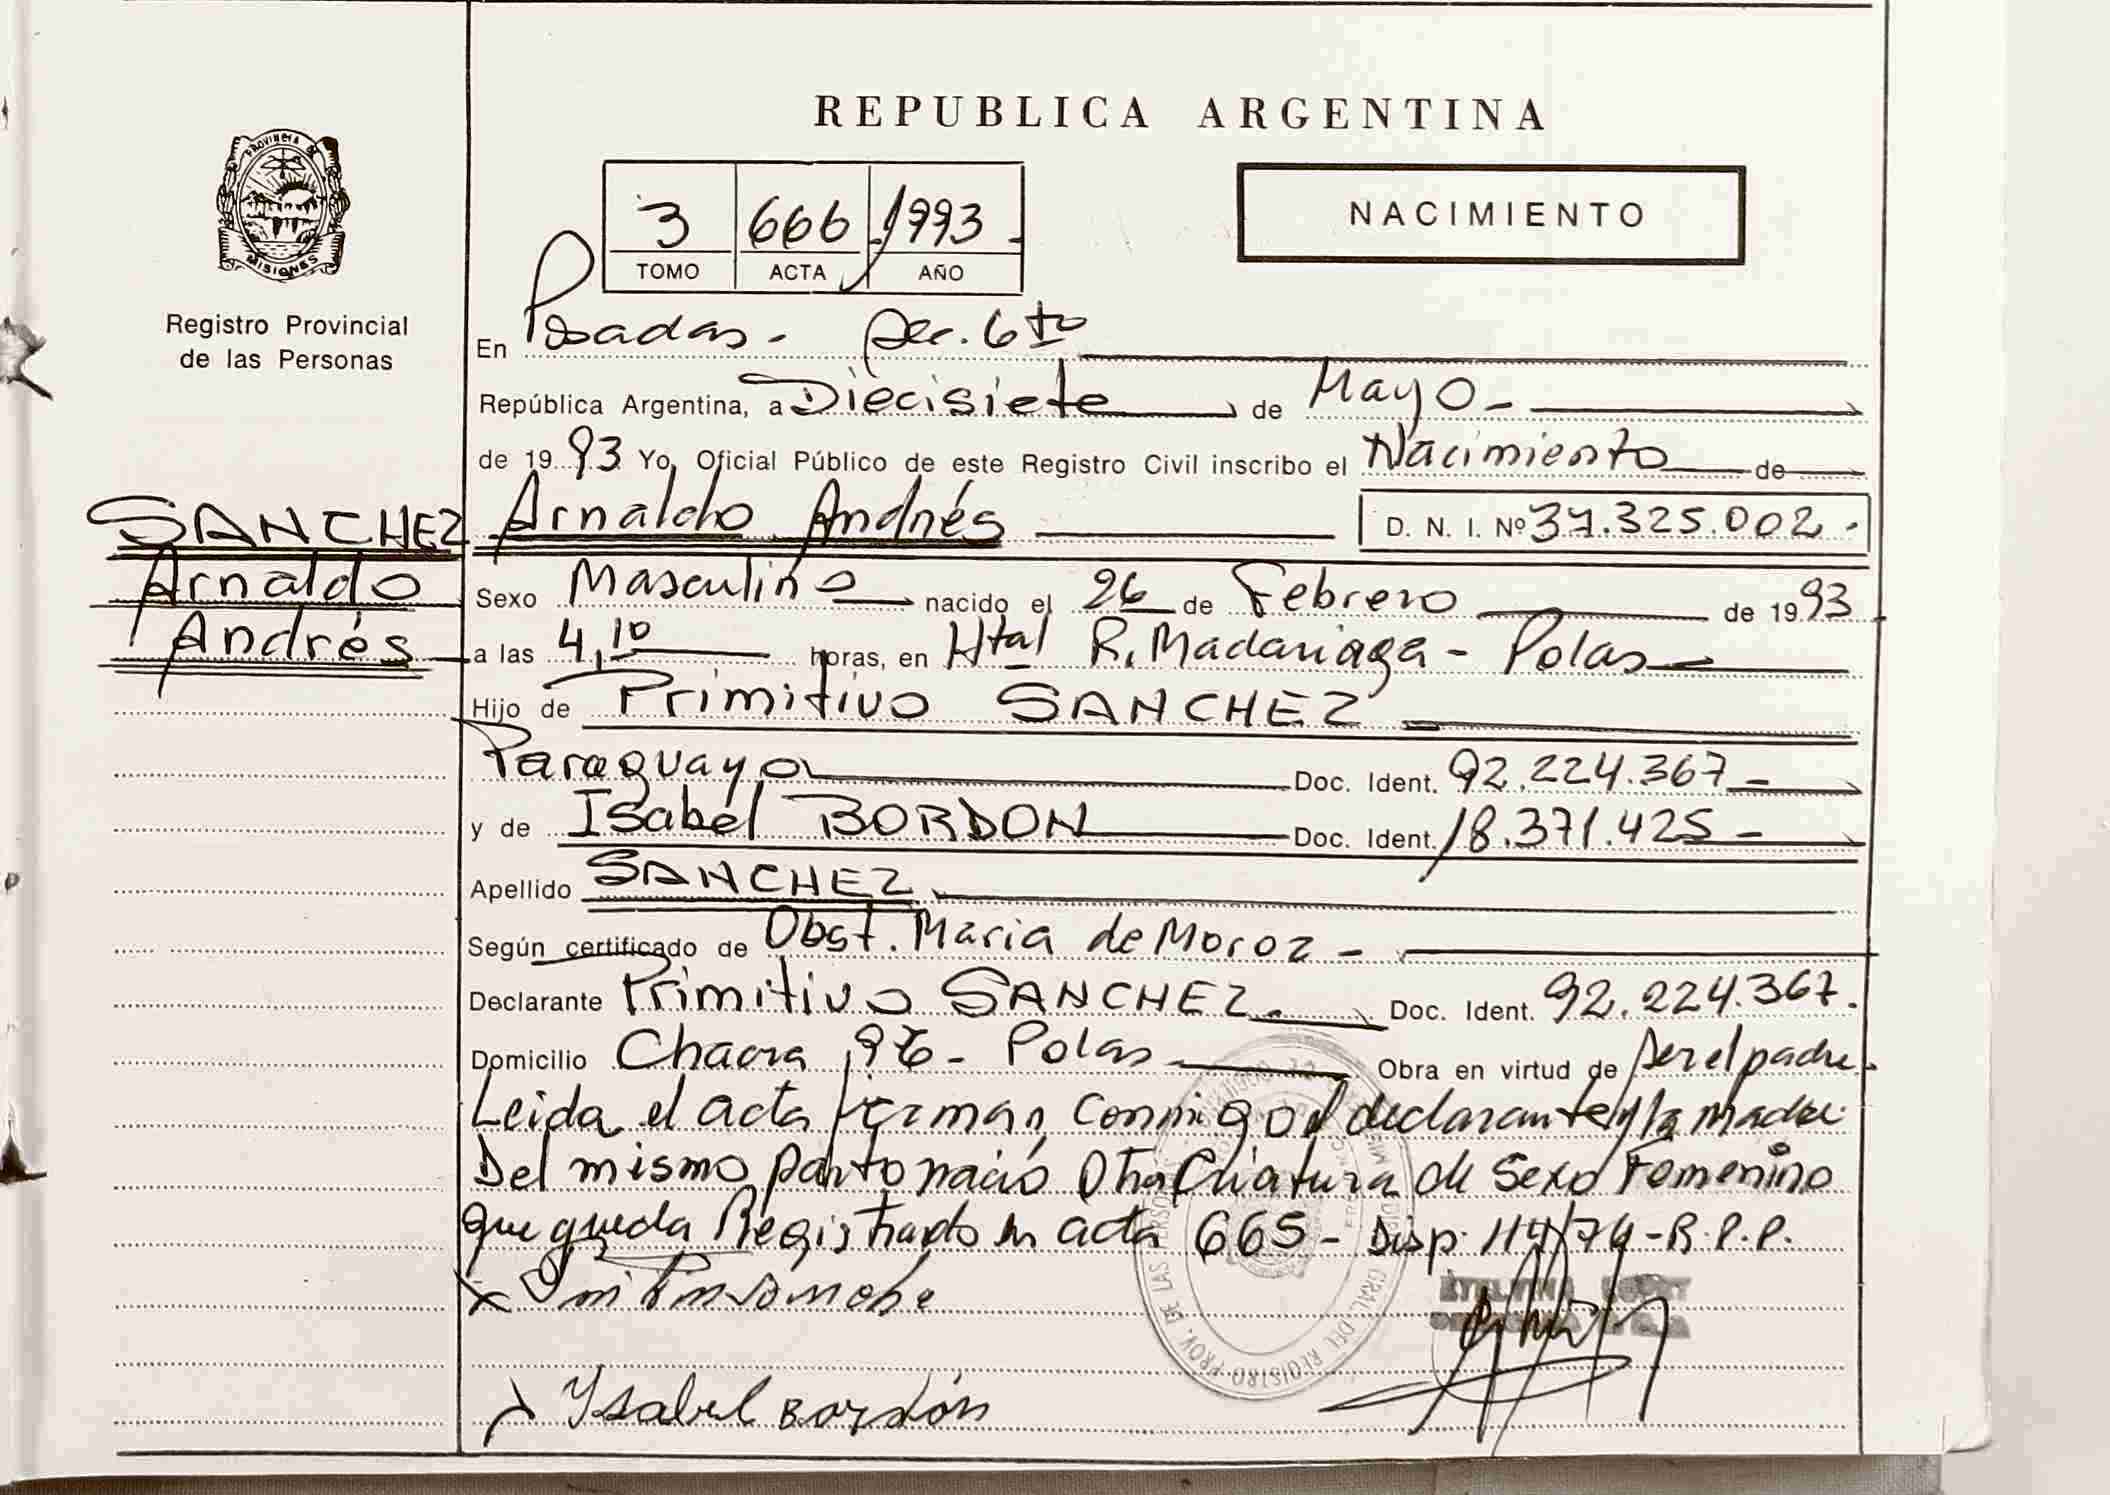 REPUBLICA ARGENTINA
PROVINCIA DE
MISIONES
Registro Provincial
de las Personas
3 666 1993
TOMO ACTA AÑO
NACIMIENTO
En Posadas - Sec. 6to
República Argentina, a Diecisiete de Mayo -
de 1993 Yo, Oficial Público de este Registro Civil inscribo el Nacimiento de
SANCHEZ
Arnaldo
Andrés
Arnaldo Andrés D. N. I. Nº 37.325.002.
Sexo Masculino nacido el 26 de Febrero de 1993
a las 4,10 horas, en Htal R. Madariaga - Pdas
Hijo de Primitivo SANCHEZ
Paraguayo Doc. Ident. 92.224.367 -
y de Isabel BORDON Doc. Ident. 18.371.425 -
Apellido SANCHEZ
Según certificado de Obst. Maria de Moroz -
Declarante Primitivo SANCHEZ. Doc. Ident. 92.224.367.
Domicilio Chacra 96 - Pdas Obra en virtud de ser el padre
Leida el acta firman conmigo el declarante y la madre
Del mismo parto nació Otra Criatura de Sexo Femenino
que queda Registrado en acta 665 - Disp. 114/74 - R.P.P.
Isabel Bordón